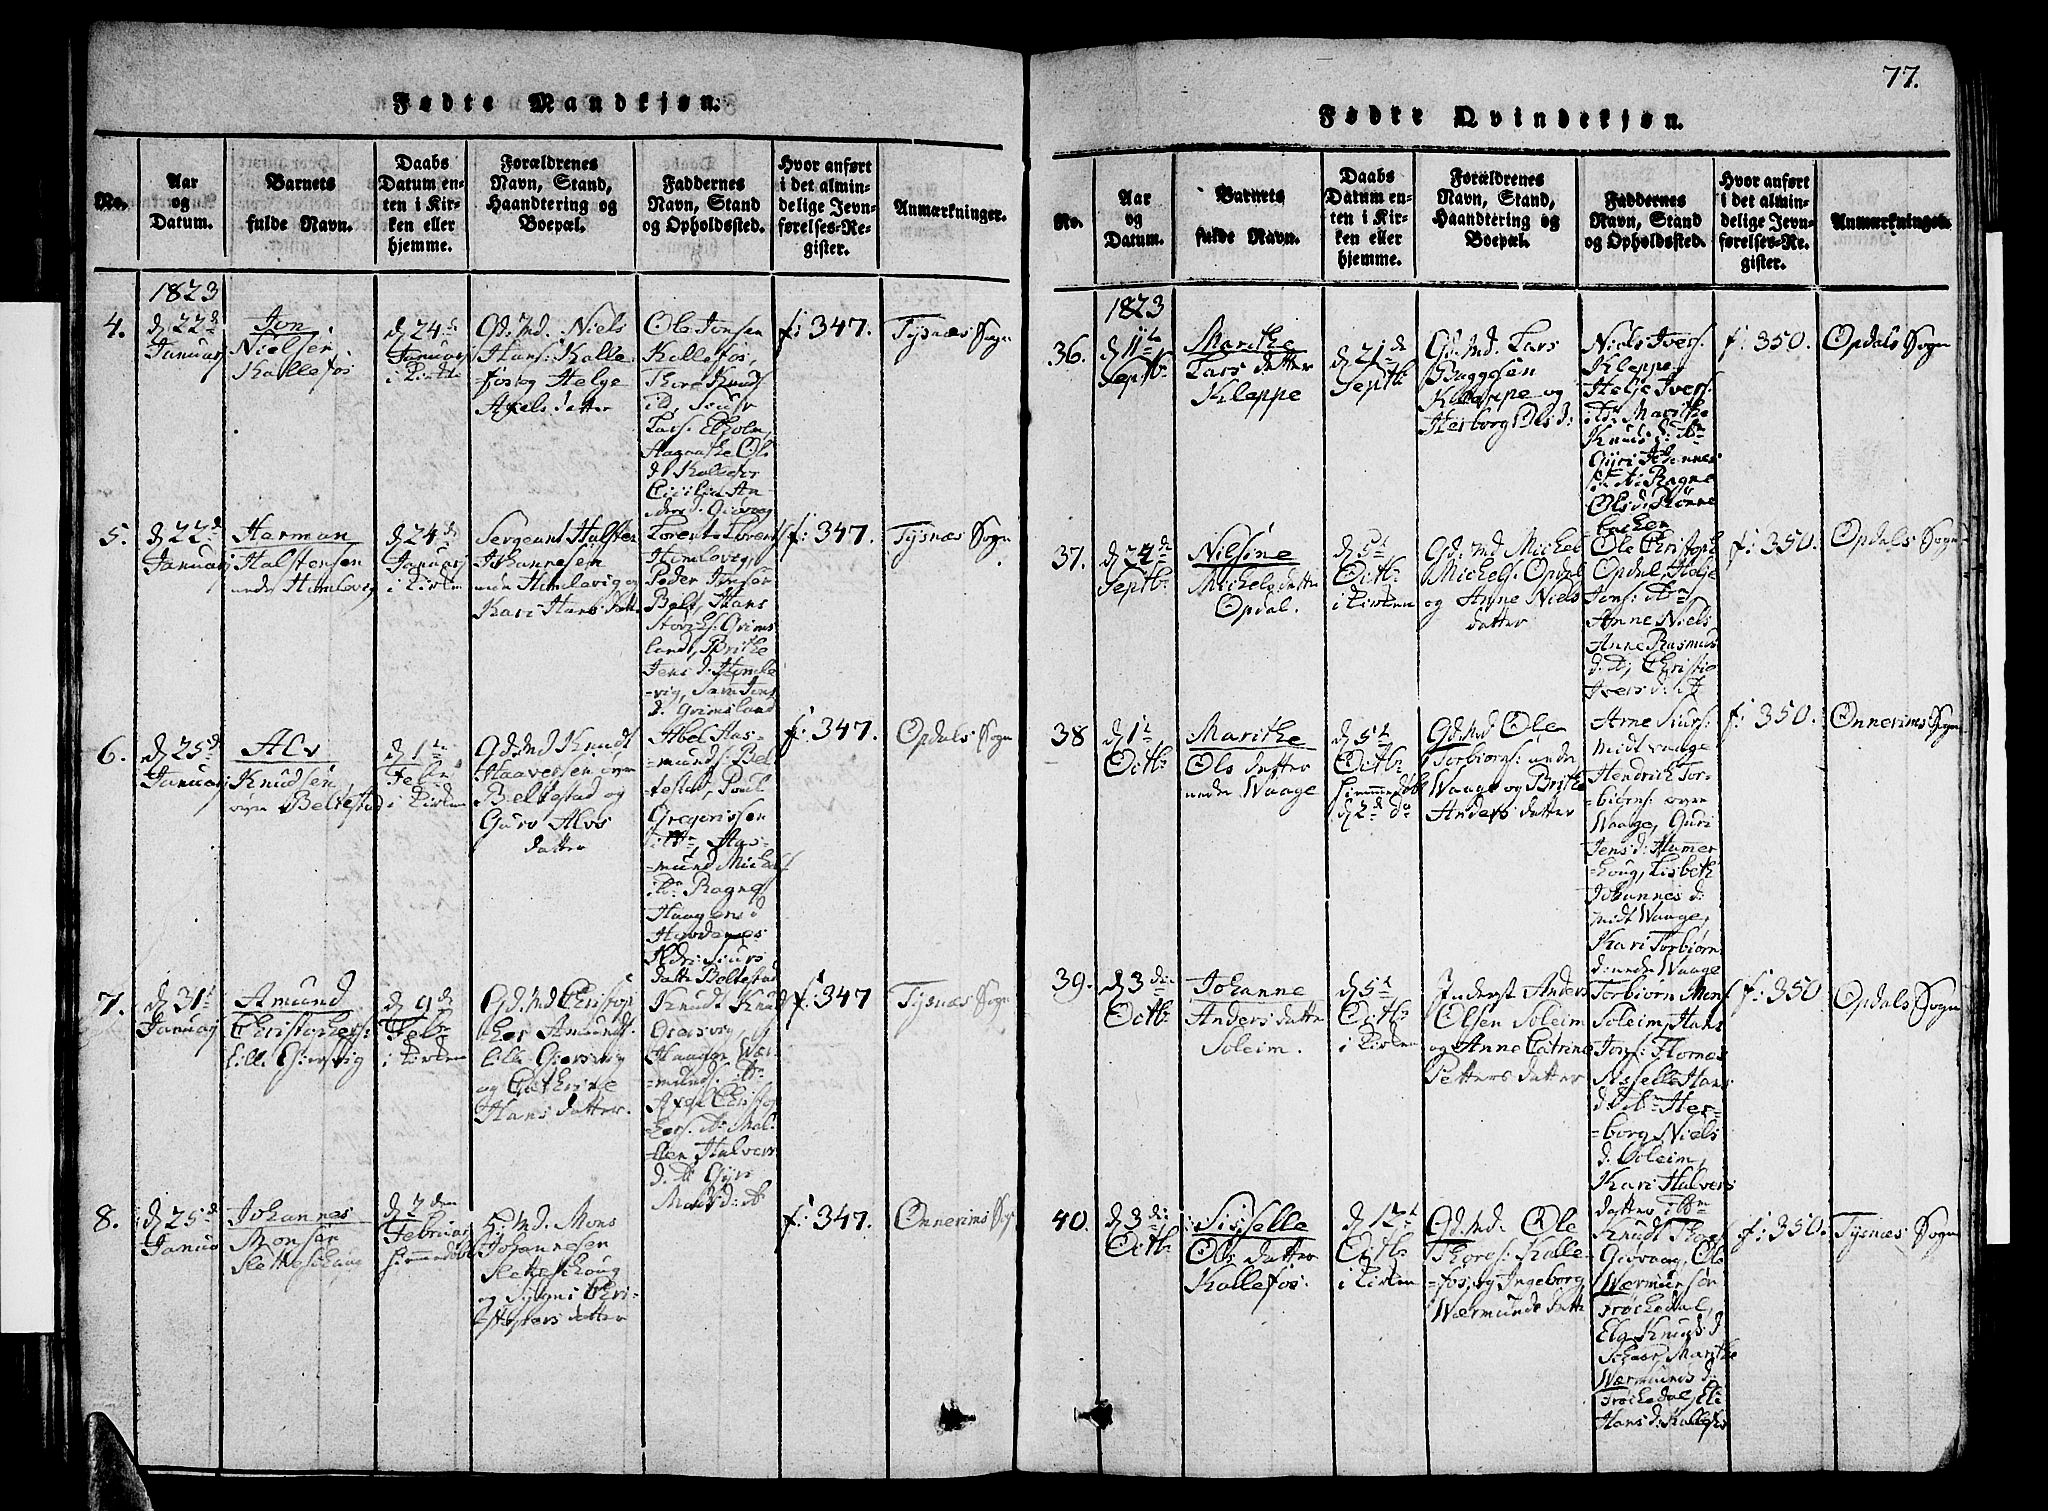 77.
Fødte Mandkjøn.
No.
Aar
og
Datum.
Barnets
fulde Navn.
Daabs
Datum en-
ten i Kir-
ken eller
hjemme.
Forældrenes
Navn, Stand,
Haandtering og
Boepæl.
Faddernes
Navn, Stand
og Opholdssted.
Hvor anført
i det almin-
delige Jevn-
førelses-Re-
gister.
Anmærkninger.
1823
4.
d 22de
Januar
Jon
Nielsen
Kallefos
d 24de
Januar
i Kirke
Gd. Md. Niels
Hans: Kalle
fos og Helge
Axels datter
Ole Jonsen
Kallefos,
Thore Knuds
Lars:
Ols
d.
Cicilia An
ders d. Giøvaag
f: 347.
Tysnæs Sogn
5.
d 22d
Januar
Herman
Halstensen
under Himlevig
d 24de
Januar
i Kirken
Sergeant Halsten
Johannesen
under Himlevig og
Kari Hans datt
Lorents Lorents
Himlevig,
Peder Jonsen
Hans
Grims
land, Brithe
Jens d. Himle
-vig,
d. Grimsland
f: 347.
Tysnæs Sogn
6.
d 25d
Januar
Alv
Knudsen
øvre Beltestad
d 1te
Febr
i Kirken
Gd. Md Knudt
Haaversen øvre
Beltestad og
Guro Alvs
datter
Abel Aas-
munds: Bel
testad, Poul
Gregorissen
ibm, Aas-
mund Michels
ibm Ragne
Haagens d
Siurs
datter Beltestad
f: 347.
Opdals Sogn
7.
d 31t
Januar
Amund
Christophers:
lille Giersvig
d 9de
Febr
i Kirken
Gd. Md Christop
her Amunds:
lille Giersvig
og Cathrine
Hans datter.
Knudt Knud
Giersvig
Haagen Wær
-mund: ibm
Axel Christop
hers:
Halvers
d.
Mads d:
f: 347
Tysnæs Sogn
8.
d 25d
Januar
Johannes
Monsen
d 2den
Februar
hiemmedøbt
H: Md. Mons
Johannesen
og Chri-
stophers datter
f: 347.
Onnerims Sogn
Fødte Qvindekjøn.
No.
Aar
og
Datum.
Barnets
fulde Navn.
Daabs
Datum en-
ten i Kir-
ken eller
hjemme.
Forældrenes
Navn, Stand,
Haandtering og
Boepæl.
Faddernes
Navn, Stand
og Opholdssted.
Hvor anført
i det almin-
delige Jevn-
førelses-Re-
gister.
Anmærkninger.
1823
36.
d 11te
Septbr
Marithe
Lars datter
Kleppe
d 21de
Septbr
Gd. Md. Lars
Baggesen
Kleppe og
Herborg Ols d:
Niels Ivers:
Kleppe,
Helje Ivers:
Marithe
Knuds d: ibm
Gyri Johannes
Ragne
Ols d.
f: 350.
Opdals Sogn
37.
d 24de
Septbr
Nilsine
Michels datter
Opdal.
d 5t
Octbr
i Kirken
Gd: Md Michel
Michels: Opdal
og Anne Niels
datter
Ole Christoph
Opdal, Helje
Jons: ibm
Anne Niels
Anne Rasmus
d. Christie
Ivers d.
f: 350.
Opdals: Sogn
38
d 1t
Octbr
Marithe
Ols datter
under Waage
d 5t
Octbr
hiemmedøbt
d 2d do
Gd Md Ole
Torbiørs: under
Waage og Brithe
Anders datter
Arne Siurs:
midt Waage
Hendrick Tor-
-biørns: øvre
Waage, Guri
Jens d: Hammer
houg, Lisbeth
Johannes d:
midt Waage,
Kari Torbiørn
d: under Waage
f: 350.
Onnerims Sogn
39.
d 3die
Octbr
Johanne
Anders datter
Soleim.
d 5t
Octbr
i Kirken
Inderst Anders
Olsen Soleim
og Anne Catrine
Petters datter
Torbiørn Mons
Soleim, Hans
Jons: Flornes
Hans
d ibm Her-
-borg Niels
d. Soleim,
Kari Halvers
datter ibm
f: 350
Opdals Sogn
40.
d 3die
Octbr
Sisselle
Ols datter
Kallefos.
d 12t
Octbr
i Kirken
Gd. Md: Ole
Thorgs: Kalle
-fos, og Ingeborg
Wærmunds datter
Knudt Thors
Giøvaag, Ole
Wærmunsen
Frøchedal,
Knuds d
Marithe
Wærmunds d:
Frøchedal,
Hans d: Kallefos
f: 350.
Tysnæs: Sogn